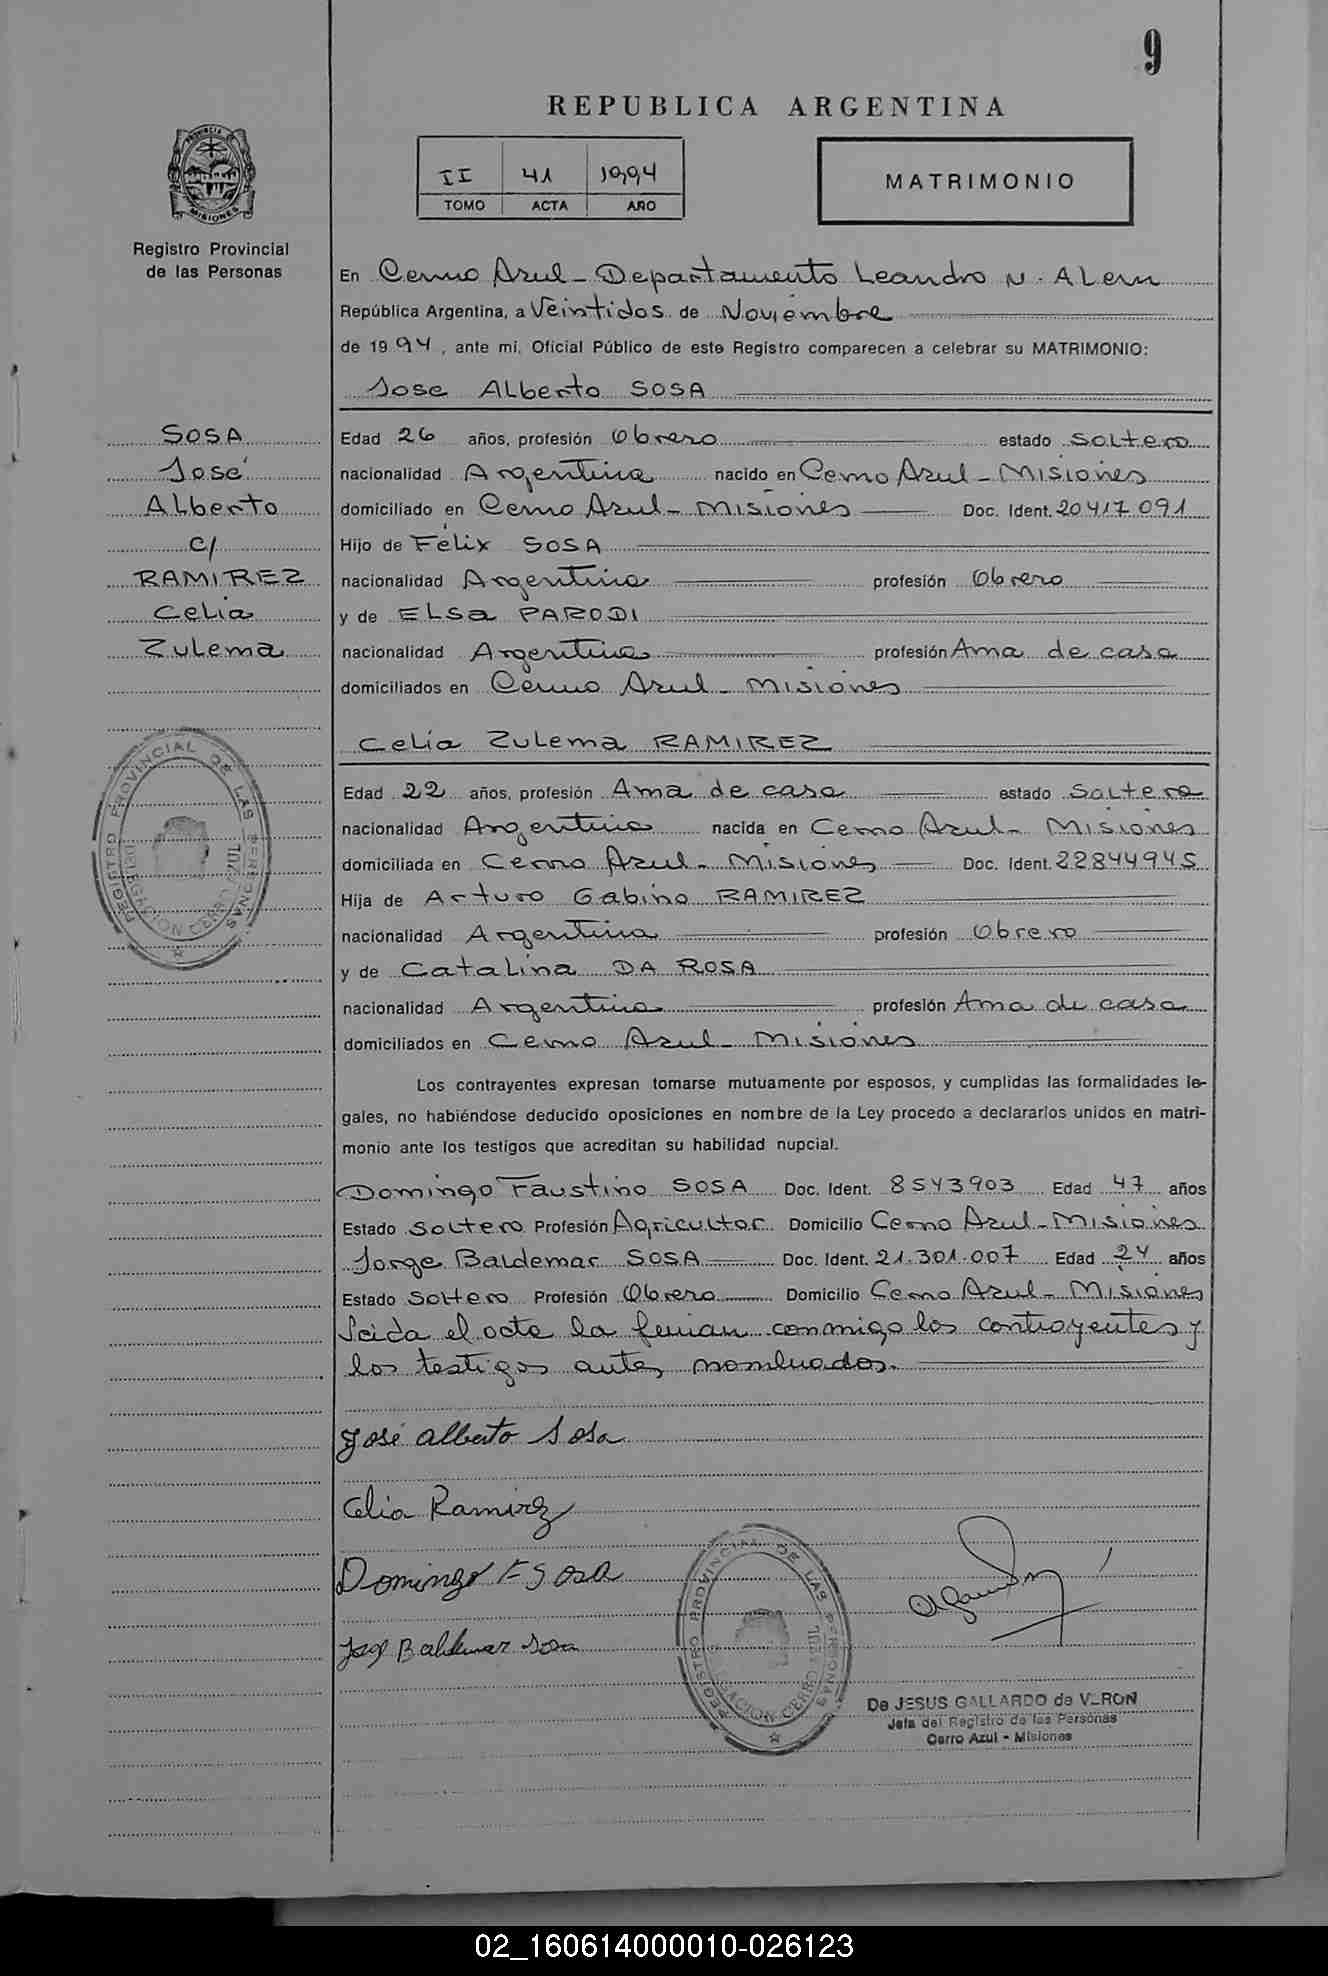 9
REPUBLICA ARGENTINA
II 41 1994
TOMO ACTA AÑO
MATRIMONIO
PROVINCIA DE
MISIONES
Registro Provincial
de las Personas
En Cerro Azul - Departamento Leandro N. ALem
República Argentina, a Veintidos de Noviembre
de 1994, ante mí, Oficial Público de este Registro comparecen a celebrar su MATRIMONIO:
Jose Alberto SOSA
SOSA
José
Alberto
c/
RAMIREZ
Celia
Zulema
Edad 26 años, profesión Obrero estado Soltero
nacionalidad Argentina nacido en Cerro Azul - Misiones
domiciliado en Cerro Azul - Misiones Doc. Ident. 20417091
Hijo de Félix SOSA
nacionalidad Argentina profesión Obrero
y de ELSa PARODI
nacionalidad Argentina profesión Ama de casa
domiciliados en Cerro Azul - Misiones
Celia Zulema RAMIREZ
Edad 22 años, profesión Ama de casa estado Soltera
nacionalidad Argentina nacida en Cerro Azul - Misiones
domiciliada en Cerro Azul - Misiones Doc. Ident. 22844945
Hija de Arturo Gabino RAMIREZ
nacionalidad Argentina profesión Obrero
y de Catalina DA ROSA
nacionalidad Argentina profesión Ama de casa
domiciliados en Cerro Azul - Misiones
Los contrayentes expresan tomarse mutuamente por esposos, y cumplidas las formalidades le-
gales, no habiéndose deducido oposiciones en nombre de la Ley procedo a declararlos unidos en matri-
monio ante los testigos que acreditan su habilidad nupcial.
Domingo Faustino SOSA Doc. Ident. 8543903 Edad 47 años
Estado Soltero Profesión Agricultor Domicilio Cerro Azul - Misiones
Jorge Baldemar SOSA Doc. Ident. 21.301.007 Edad 24 años
Estado Soltero Profesión Obrero Domicilio Cerro Azul - Misiones
Leida el acta la firman conmigo los contrayentes y
los testigos antes nombrados.
José Alberto Sosa
Celia Ramirez
Domingo F Sosa
Jorge Baldemar Sosa
REGISTRO PROVINCIAL DE LAS PERSONAS
DELEGACION CERRO AZUL
REGISTRO PROVINCIAL DE LAS PERSONAS
DELEGACION CERRO AZUL
De JESUS GALLARDO de VERON
Jefa del Registro de las Personas
Cerro Azul - Misiones
02_160614000010-026123